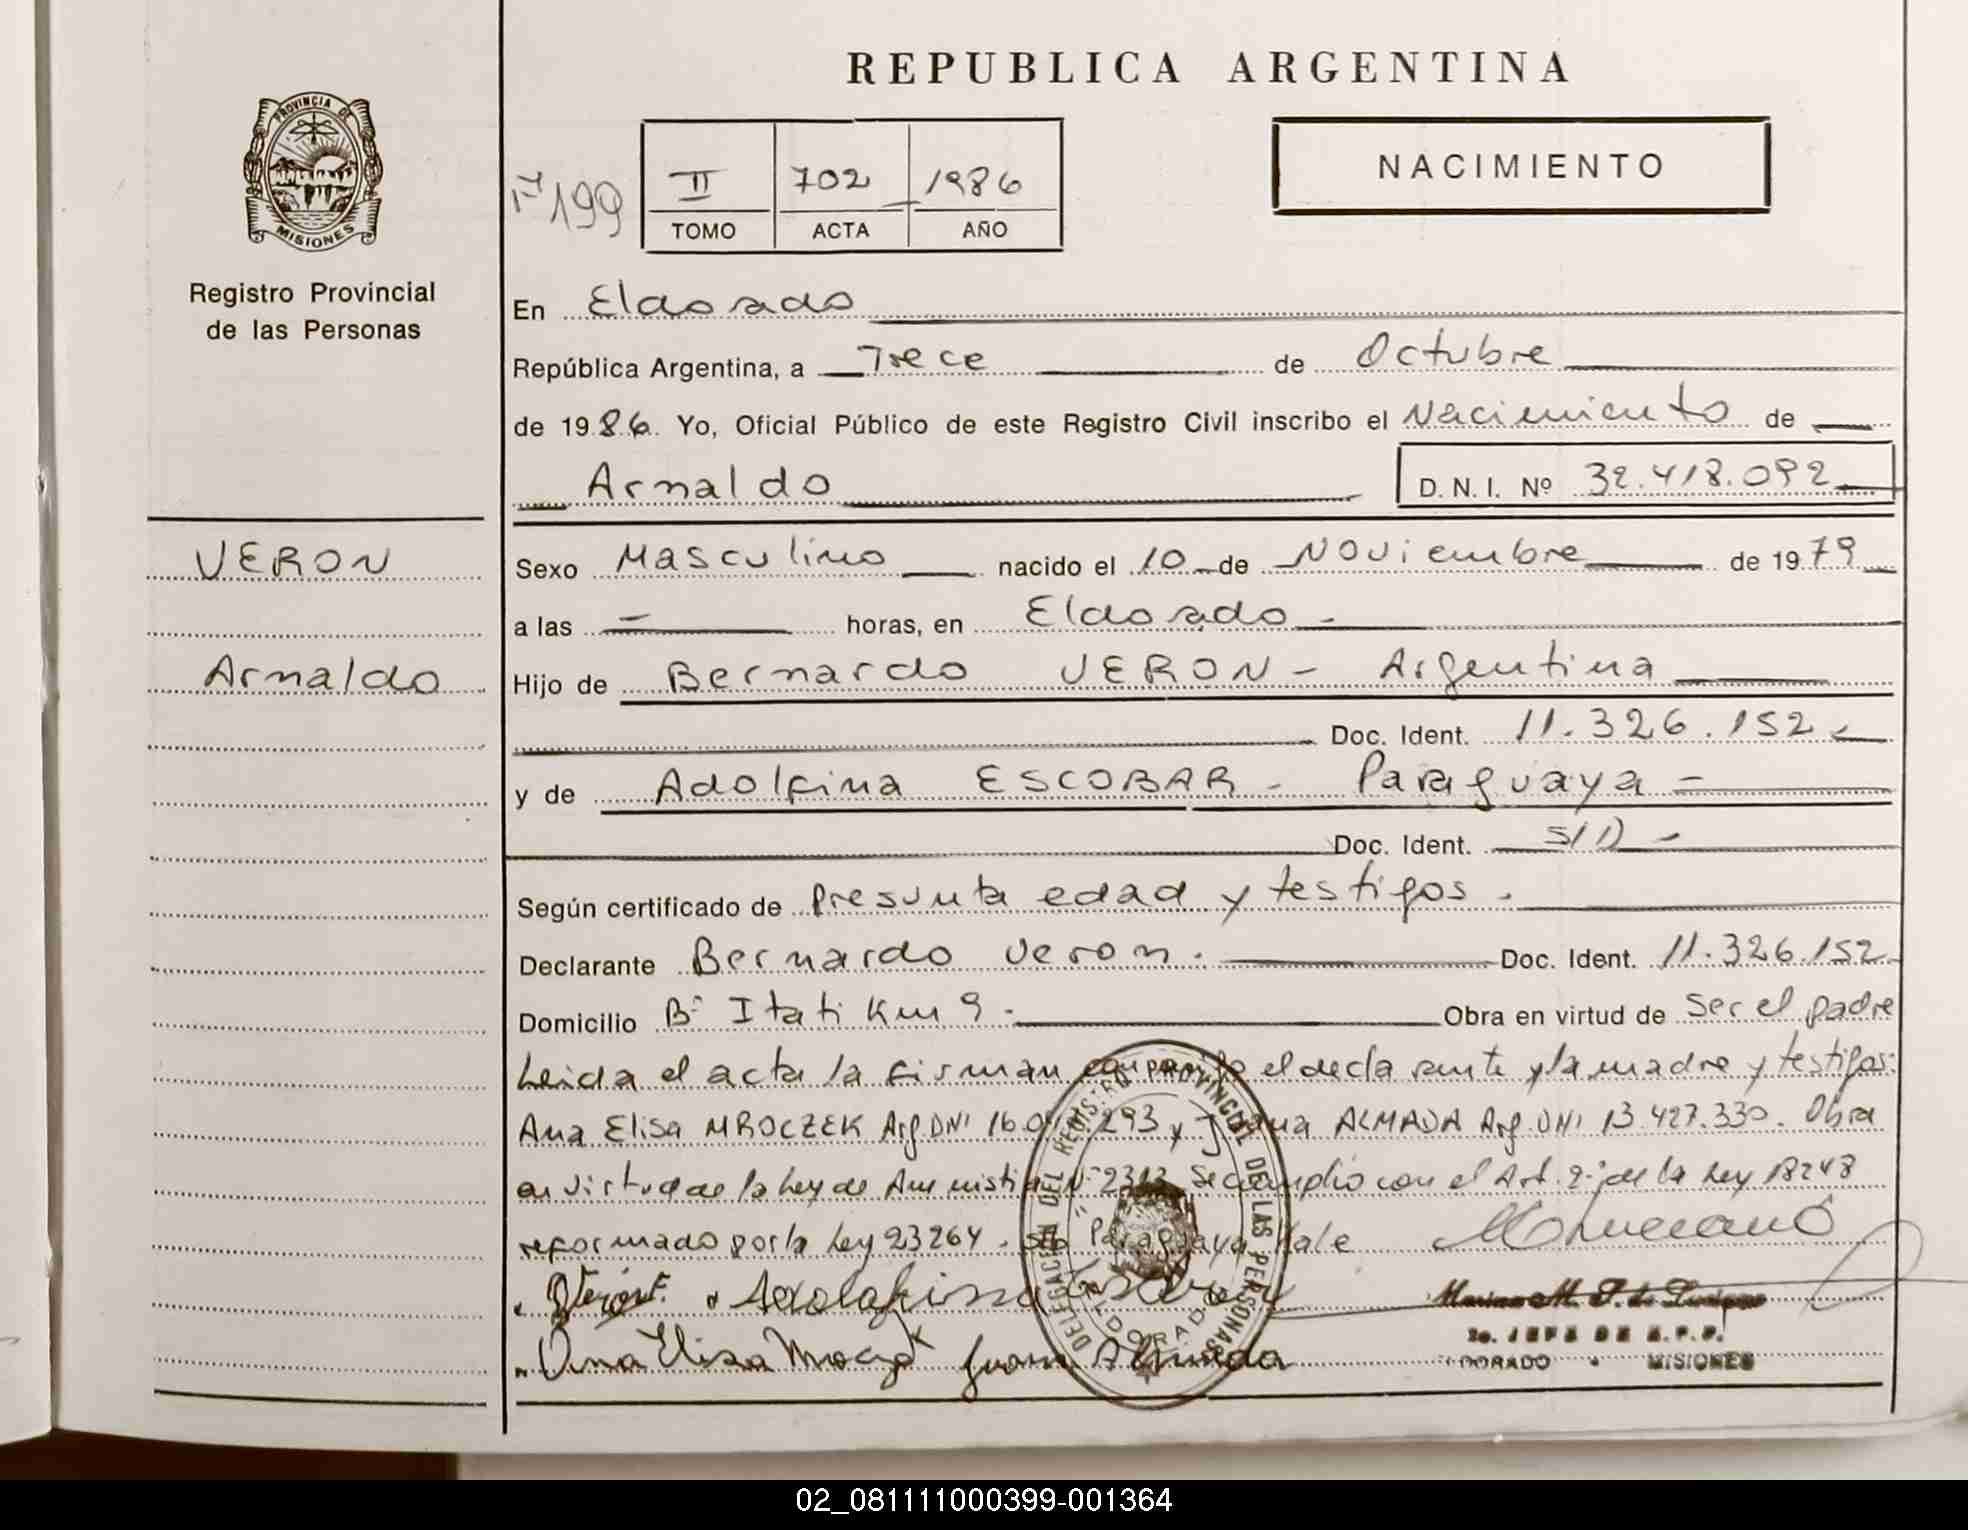 REPUBLICA ARGENTINA
PROVINCIA DE
MISIONES
Registro Provincial
de las Personas
Fº 199
II 702 1986
TOMO ACTA AÑO
NACIMIENTO
En Eldorado
República Argentina, a Trece de Octubre
de 1986. Yo, Oficial Público de este Registro Civil inscribo el Nacimiento de
Arnaldo D. N. I. Nº 32.418.092
VERON
Arnaldo
Sexo Masculino nacido el 10 de Noviembre de 1979
a las - horas, en Eldorado -
Hijo de Bernardo VERON - Argentina
Doc. Ident. 11.326.152
y de Adolfina ESCOBAR - Paraguaya -
Doc. Ident. S/D -
Según certificado de Presunta edad y testigos.
Declarante Bernardo Veron. Doc. Ident. 11.326.152
Domicilio Bº Itati Km 9. Obra en virtud de Ser el padre
Leida el acta la firman el declarante y la madre y testigos:
Ana Elisa MROCZEK Arg. DNI 16.0 293 y Juana ALMADA Arg. DNI 13.427.330. Obra
en virtud de la Ley de Amnistia Nº 2313. Se cumplio con el Art. 2º de la Ley 18248
reformado por la Ley 23264. Paraguaya Vale
Veron
Ana Elisa Juana Almada
DELEGACION DEL REGISTRO PROVINCIAL DE LAS PERSONAS
ELDORADO
2o. JEFE DE R.P.P.
DORADO - MISIONES
02_081111000399-001364